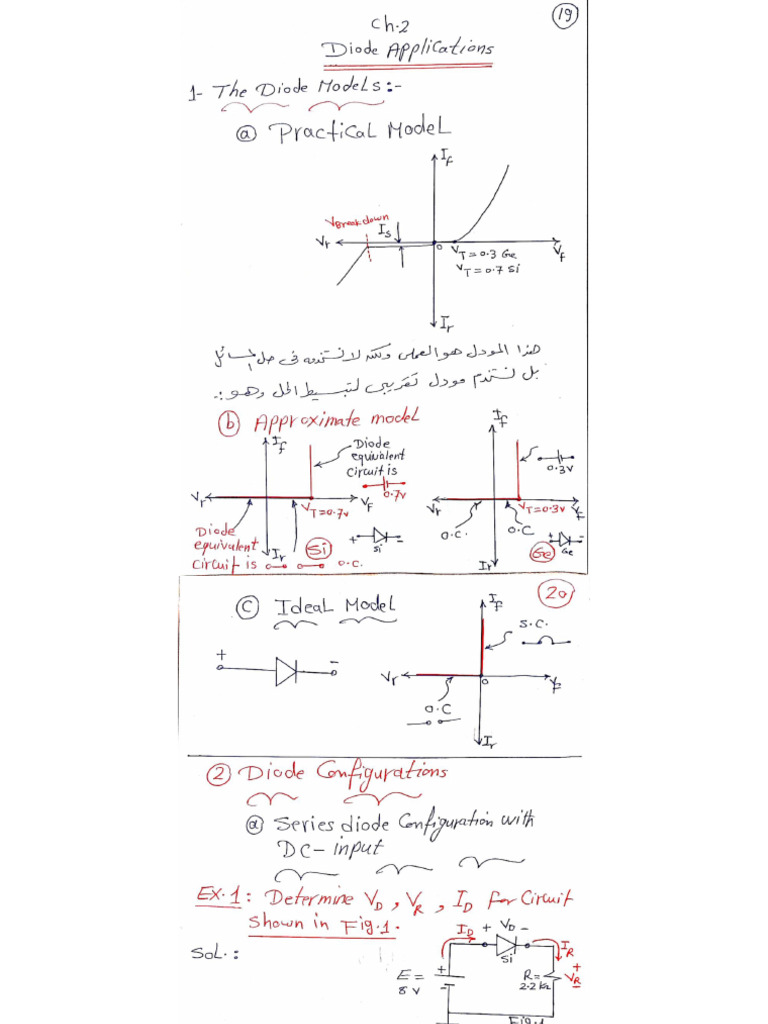 19
Ch.2
Diode Applications
1- The Diode Models:-
ⓐ Practical Model
If
VBreakdown
Is
Vr
o
VT=0.3 Ge
Vf
VT=0.7 Si
Ir
هذا المودل هو العملى ولكنه لا نستخدمه فى حل المسائل
بل نستخدم مودل تقريبى لتبسيط الحل وهو:.
ⓑ Approximate model
If
Diode
equivalent
circuit is
0.7v
Vr
VT=0.7v
Vf
Diode
equivalent
circuit is
o.c.
Ir
Si
+
-
Si
If
0.3v
Vr
VT=0.3v
Vf
o.c.
o.c
Ge
+
-
Ge
Ir
20
ⓒ Ideal Model
+
-
If
s.c.
Vr
o
Vf
o.c
Ir
② Diode Configurations
ⓐ Series diode Configuration with
DC-input
Ex.1: Determine VD, VR, ID for Circuit
shown in Fig.1.
SoL.:
ID
+ VD -
Si
IR
E=
8 V
+
-
R=
2.2kΩ
+
VR
-
Fig.1